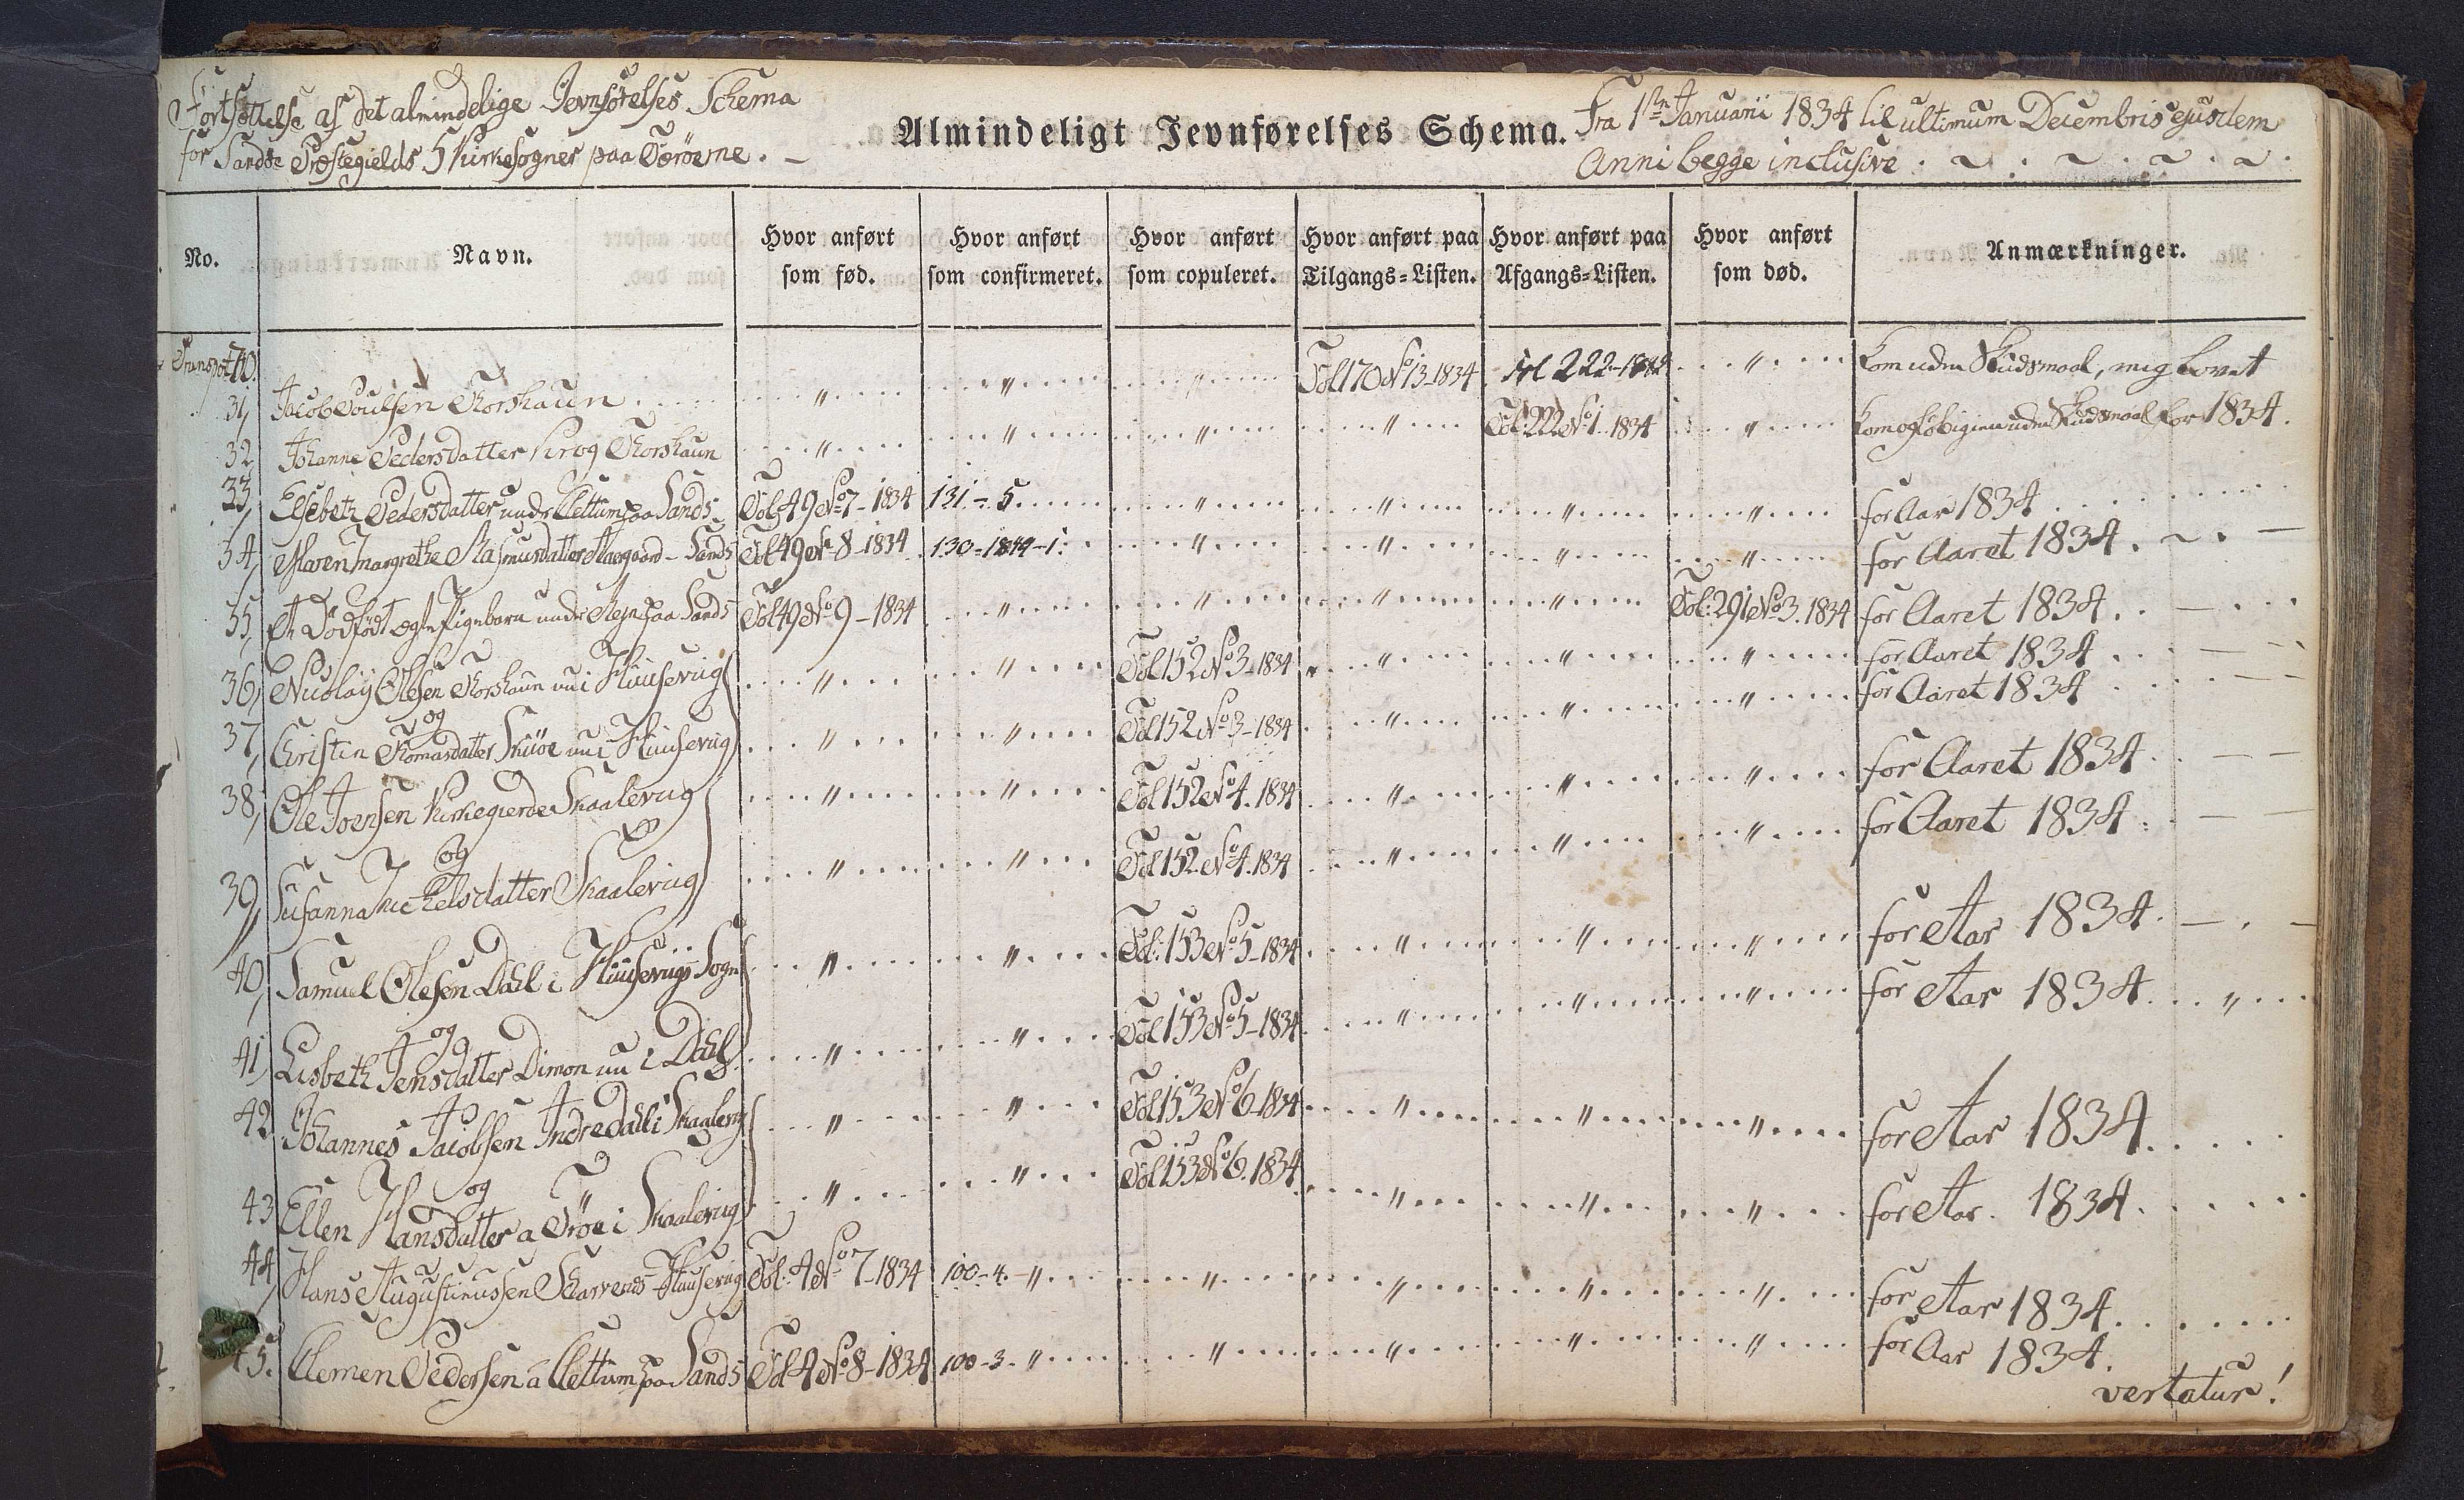 Fortsættelse af det almindelige Jevnførelses Schema
for Sandøe Præstegields 5 Kirkesogner paa Færöerne.
Almindeligt Jevnførelses Schema.
Fra 1ste Januarii 1834 til ultimum Decembris ejusdem
Anni begge inclusive
No. Navn. Hvor anført som fød. Hvor anført som confirmeret. Hvor anført som copuleret. Hvor anført paa Tilgangs-Listen. Hvor anført paa Afgangs-Listen. Hvor anført som død. Anmærkninger.
31, Jacob Poulsen Thorshaun " " " Fol 170 No 13-1834 Fol 222 " Kom uden Skudsmaal, mig lovet
32 Johanne Pedersdatter Krog Thorshaun " " " " Fol: 222 No 1. 1834 " Kom og uden Skudsmaal for 1834.
33, Elsebeth Pedersdatter under Clettum paa Sands Fol 49 No 7-1834 131-5 " " " " for Aar 1834
34, Maren Margrethe Rasmusdatter - Sands Fol 49 No 8-1834 130-1849-1: " " " " for Aaret 1834.
35, Et Dödfödt ægte Pigebarn under paa Sands Fol 49 No 9-1834 " " " " Fol: 291 No 3. 1834 for Aaret 1834.
36, Nicolaÿ Olesen Thorshaun nu i Huuseviig " " Fol 152 No 3-1834 " " " for Aaret 1834
og
37, Christin Thomasdatter Skuöe nu i Huusevig " " Fol 152 No 3-1834 " " " for Aaret 1834
38, Ole Joensen Kirkegierde Skaaleviig " " Fol 152 No 4. 1834 " " " for Aaret 1834
og
39, Susanna Michelsdatter Skaalevig " " Fol 152 No 4. 1834 " " " for Aaret 1834
40, Samuel Olesen Dahl i Huusevigs Sogn " " Fol: 153 No 5-1834 " " " for Aar 1834.
og
41, Lisbeth Jensdatter Dimon nu i Dahl " " Fol 153 No 5-1834 " " " for Aar 1834
42 Johannes Jacobsen Indredahl i Skaalevig " " Fol 153 No 6-1834 " " " for Aar 1834
og
43 Ellen Hansdatter a Tröe i Skaalevig " " Fol 153 No 6. 1834 " " " for Aar. 1834.
44, Hans Augustinussen Skarvenes Huusevig Fol: 4 No 7-1834 100-4. " " " " " for Aar 1834.
45. Clemen Pedersen a Clettum paa Sands Fol 4 No 8-1834 100-3. " " " " " for Aar 1834.
vertatur!